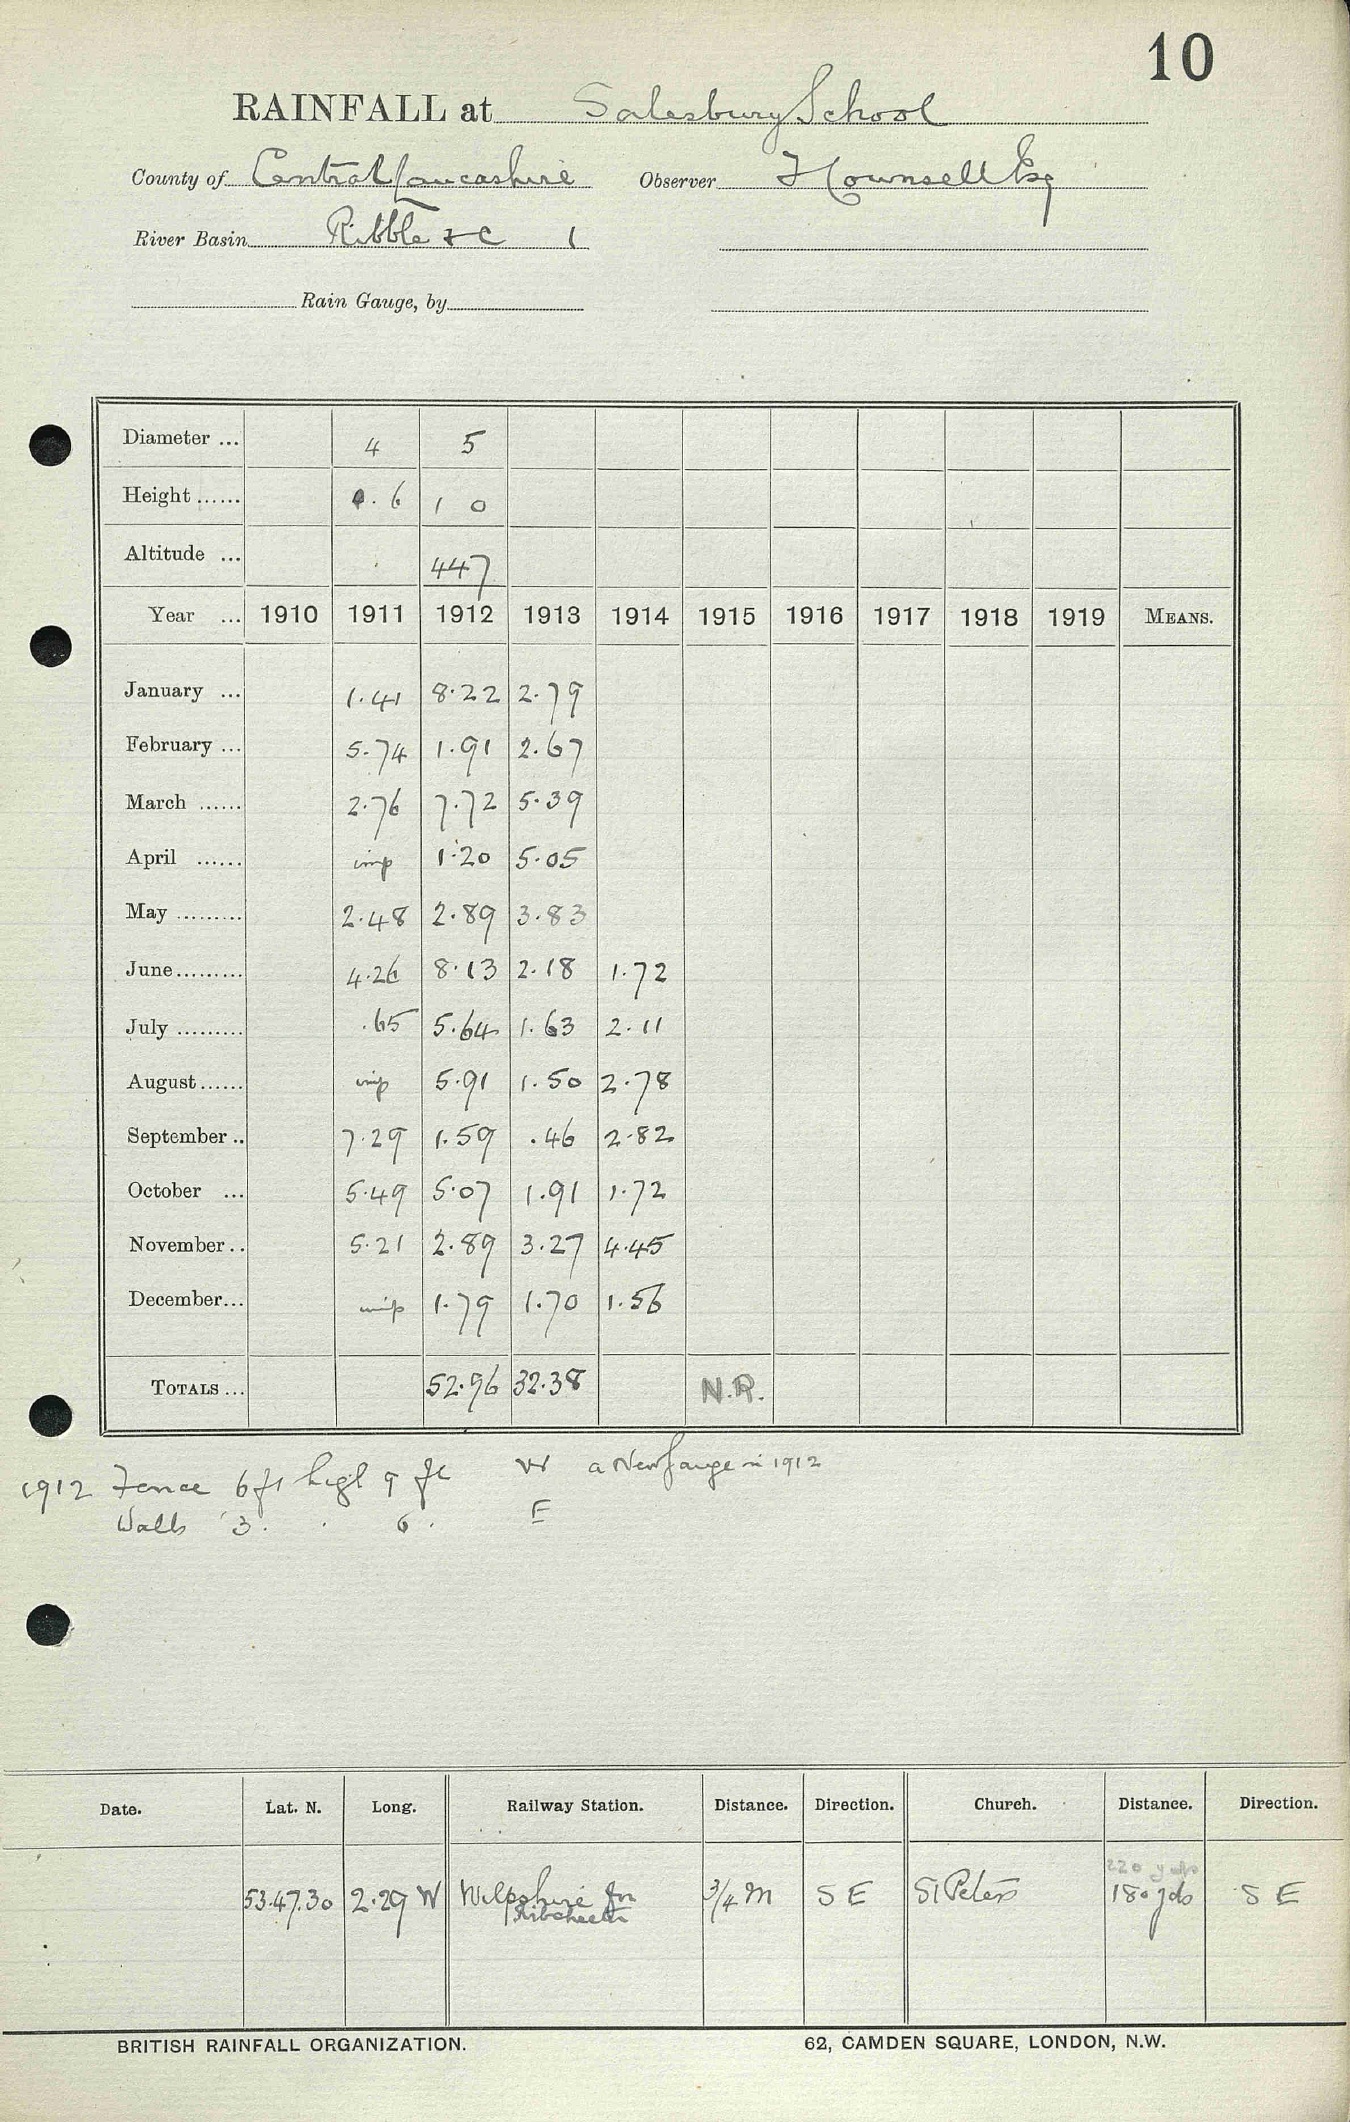 10
RAINFALL at Salesbury School
County of Central Lancashire Observer Hounsell Esq
River Basin Ribble &c 1
Rain Gauge, by
Diameter ... 4 5
Height ...... 0.6 1 0
Altitude ... 447
Year ... 1910 1911 1912 1913 1914 1915 1916 1917 1918 1919 MEANS.
January ... 1.41 8.22 2.79
February ... 5.74 1.91 2.67
March ...... 2.76 7.72 5.39
April ...... imp 1.20 5.05
May ......... 2.48 2.89 3.83
June ......... 4.26 8.13 2.18 1.72
July ......... .65 5.64 1.63 2.11
August ...... imp 5.91 1.50 2.78
September .. 7.29 1.59 .46 2.82
October ... 5.49 5.07 1.91 1.72
November .. 5.21 2.89 3.27 4.45
December ... imp 1.79 1.70 1.56
TOTALS ... 52.96 32.38 N.R.
1912 Fence 6 ft high 9 ft W a New gauge in 1912
Walls 3 . . 6 . E
Date. Lat. N. Long. Railway Station. Distance. Direction. Church. Distance. Direction.
220 yds
53.47.30 2.29 W Wilpshire for 3/4 m S E St Peters 180 yds S E
Ribchester
BRITISH RAINFALL ORGANIZATION. 62, CAMDEN SQUARE, LONDON, N.W.